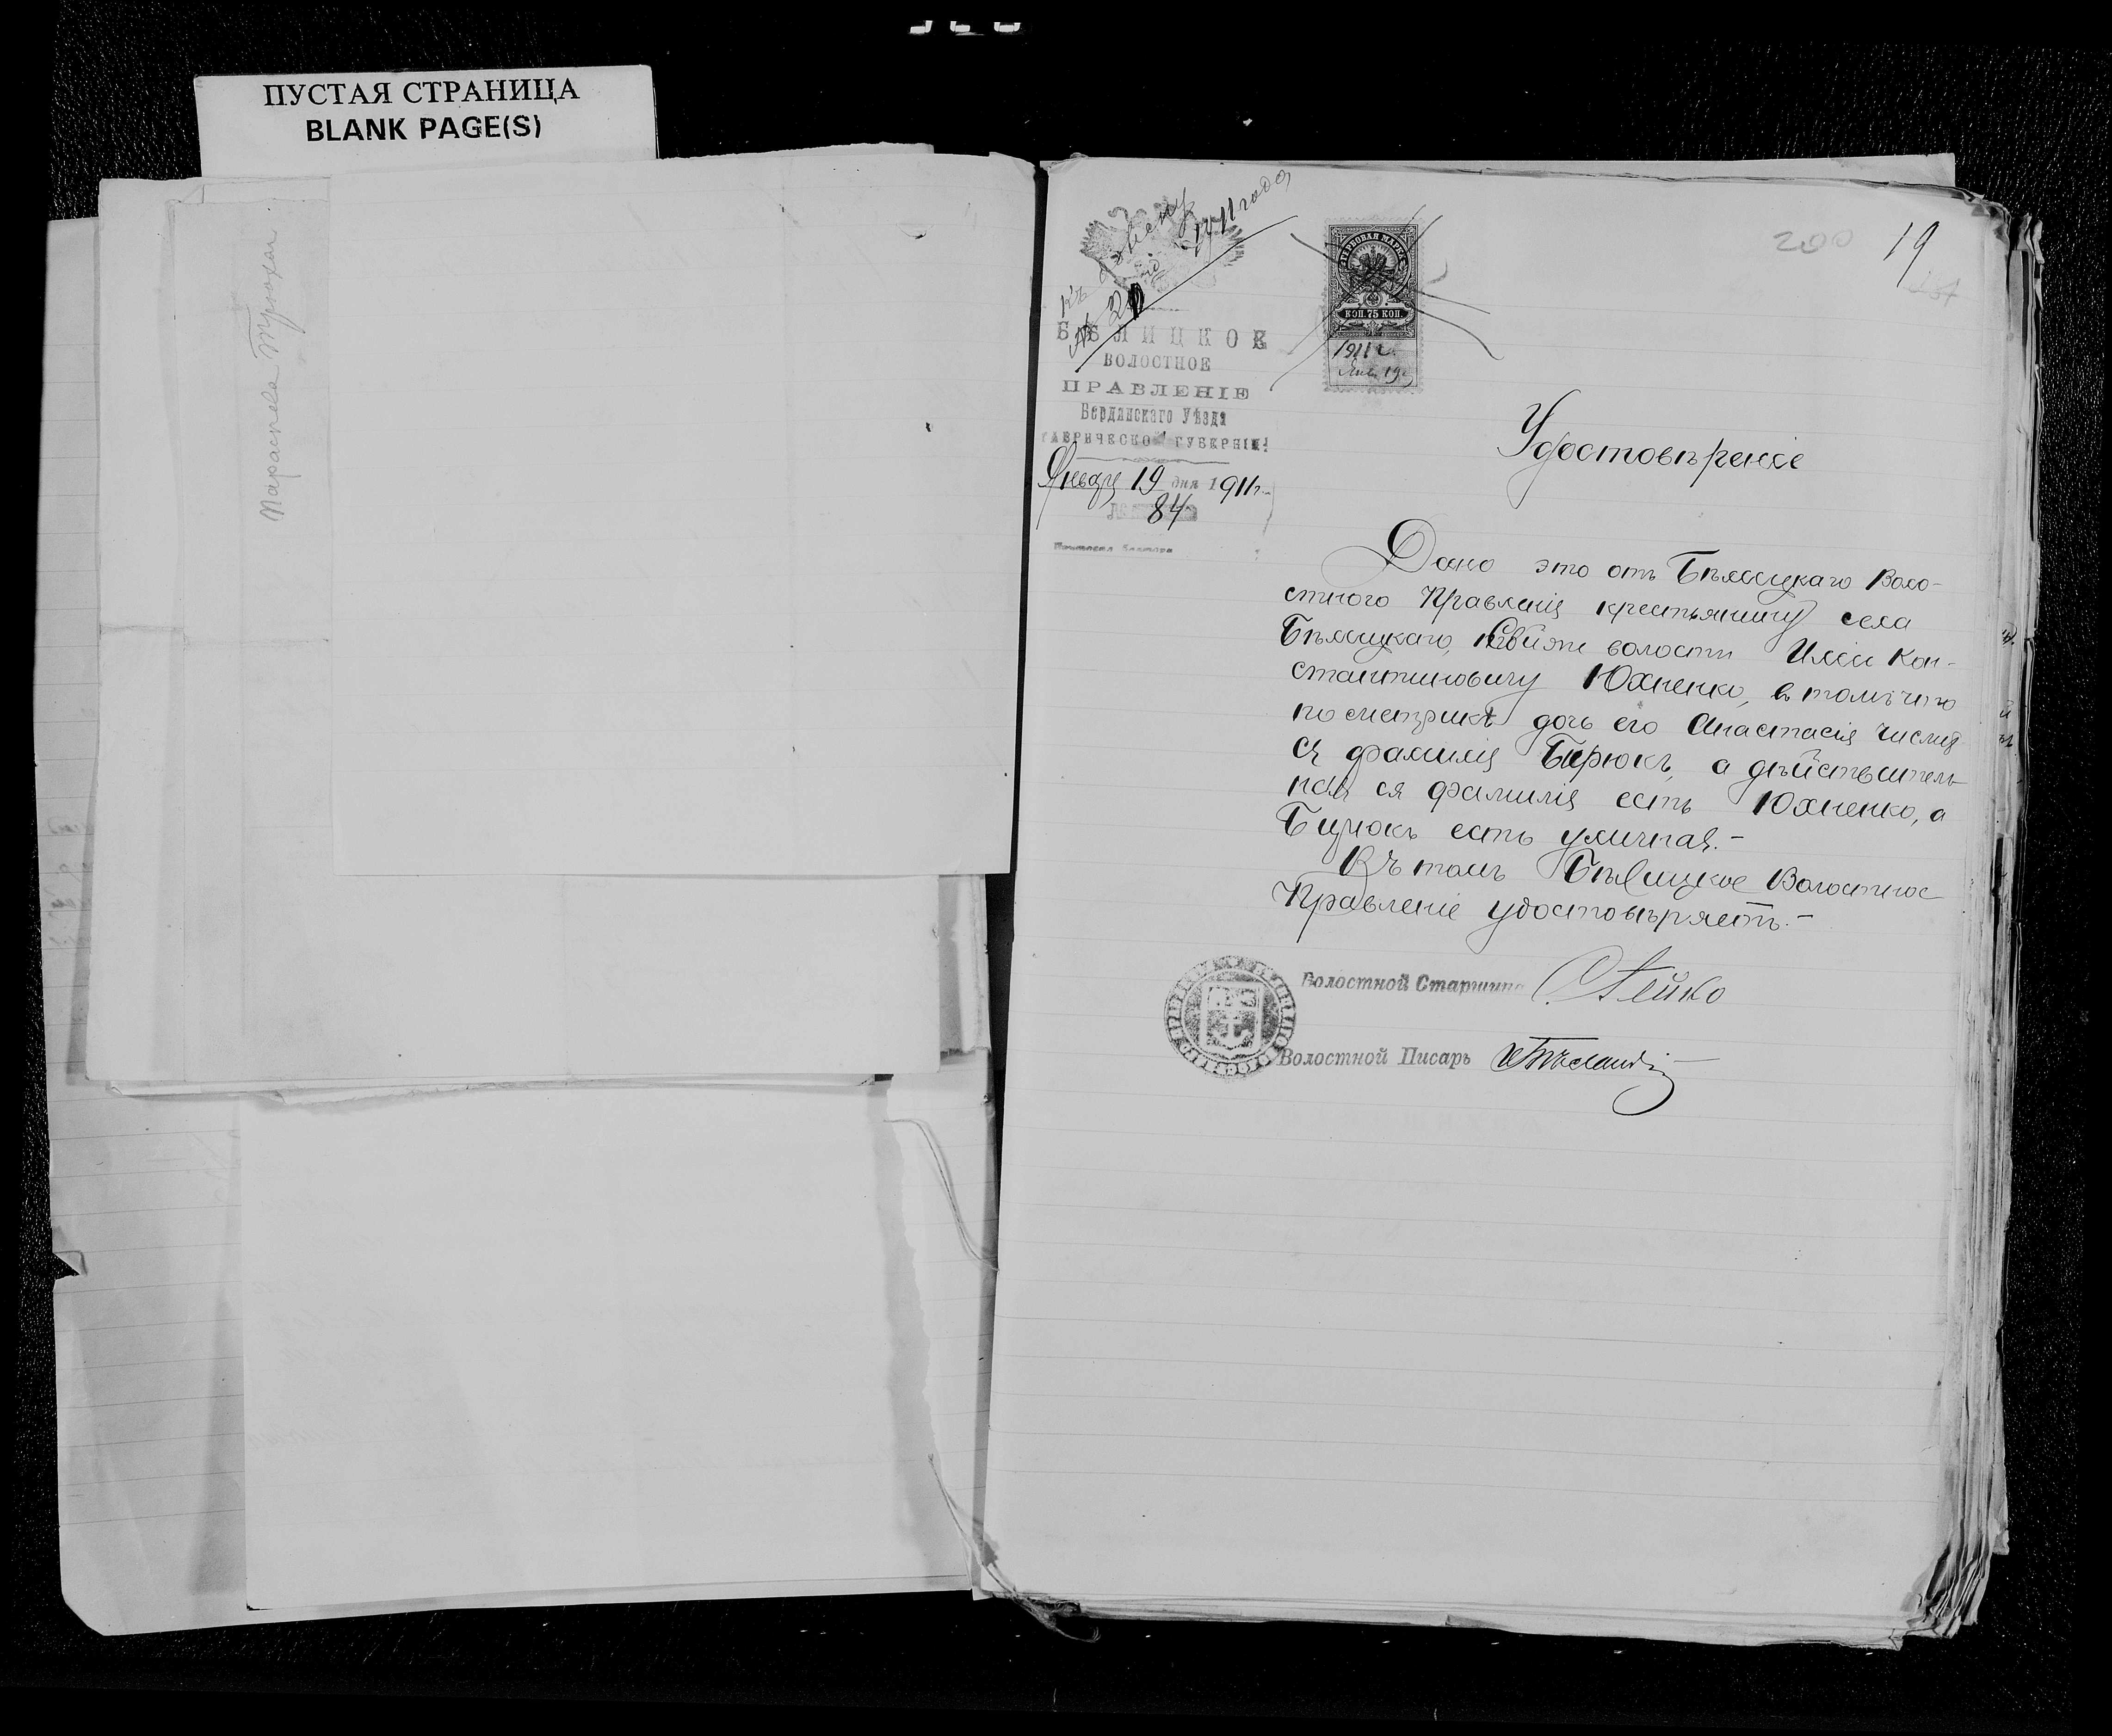 ПУСТАЯ СТРАНИЦА
BLANK PAGE(S)
Параскева
Къ
1911 года
№ 21
БѢЛИЦКОЕ
ВОЛОСТНОЕ
ПРАВЛЕНІЕ
Бердянскаго Уѣзда
ТАВРИЧЕСКОЙ ГУБЕРНІИ
Января 19 дня 1911 г.
84
ГЕРБОВАЯ МАРКА
КОП. 75 КОП.
1911 г.
Янв. 19
200
19
Удостовѣреніе
Дано это отъ Бѣлицкаго Воло-
стного Правленія крестьянину села
Бѣлицкаго, волости Иліи Кон-
стантиновичу Юхненко, въ томъ что
по метрикѣ дочь его Анастасія числит
ся фамилія Бирюкъ, а дѣйствитель
ная ея фамилія есть Юхненко, а
Бирюкъ есть уличная.-
Въ томъ Бѣлицкое Волостное
Правленіе удостовѣряетъ.-
Волостной Старшина
Волостной Писарь